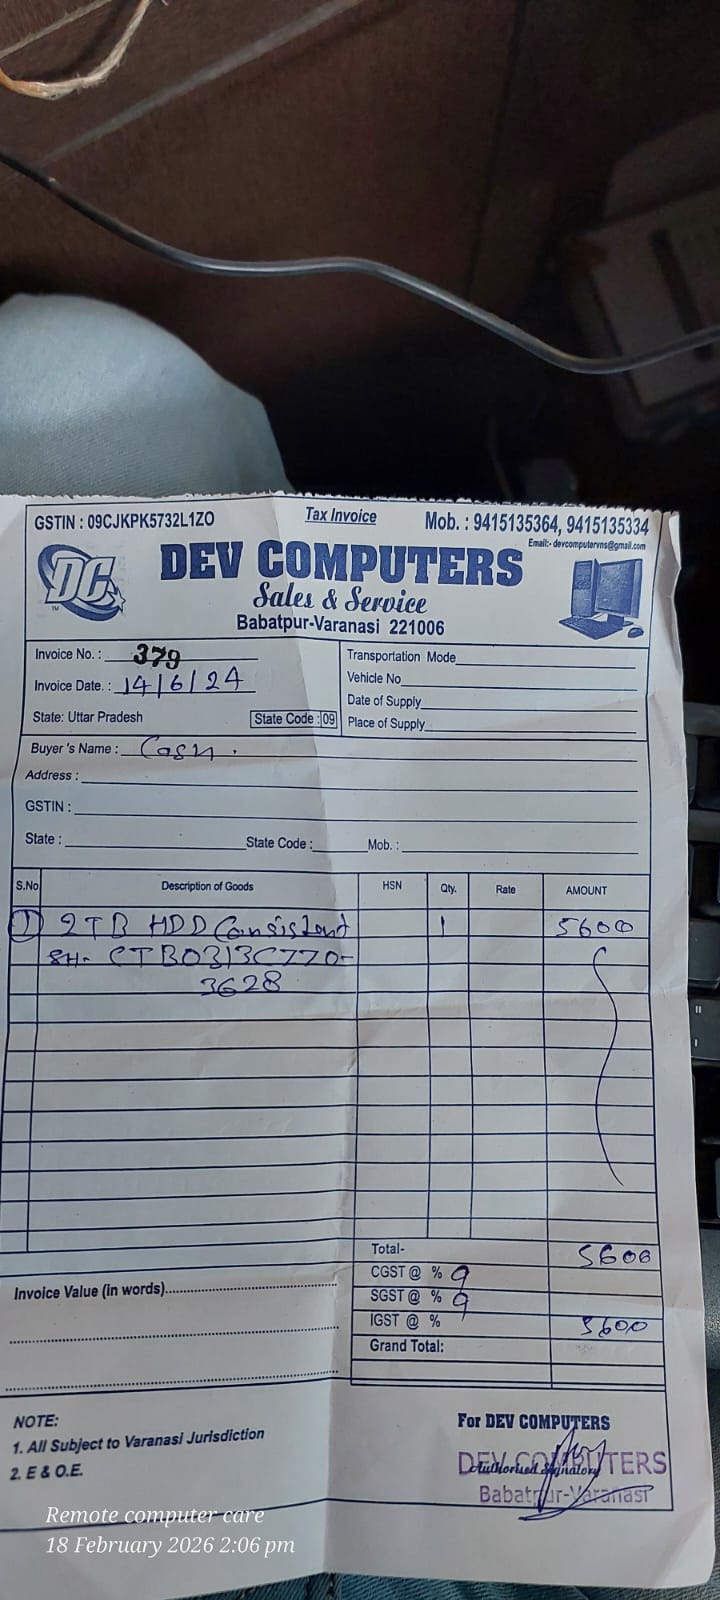 GSTIN : 09CJKPK5732L1ZO Tax Invoice Mob. : 9415135364, 9415135334
Email:- devcomputervns@gmail.com
DC
TM
DEV COMPUTERS
Sales & Service
Babatpur-Varanasi 221006
Invoice No. : 379
Invoice Date. : 14/6/24
State: Uttar Pradesh State Code : 09
Transportation Mode
Vehicle No
Date of Supply
Place of Supply
Buyer 's Name : Cash .
Address :
GSTIN :
State : State Code : Mob. :
S.No Description of Goods HSN Qty. Rate AMOUNT
1 2TB HDD Consistent 1 5600
CTB0313C770-
3628
Total- 5600
CGST @ % 9
SGST @ % 9
IGST @ % 5600
Grand Total:
Invoice Value (in words)
NOTE:
1. All Subject to Varanasi Jurisdiction
2. E & O.E.
For DEV COMPUTERS
DEV COMPUTERS
Authorised Signatory
Babatpur-Varanasi
Remote computer care
18 February 2026 2:06 pm